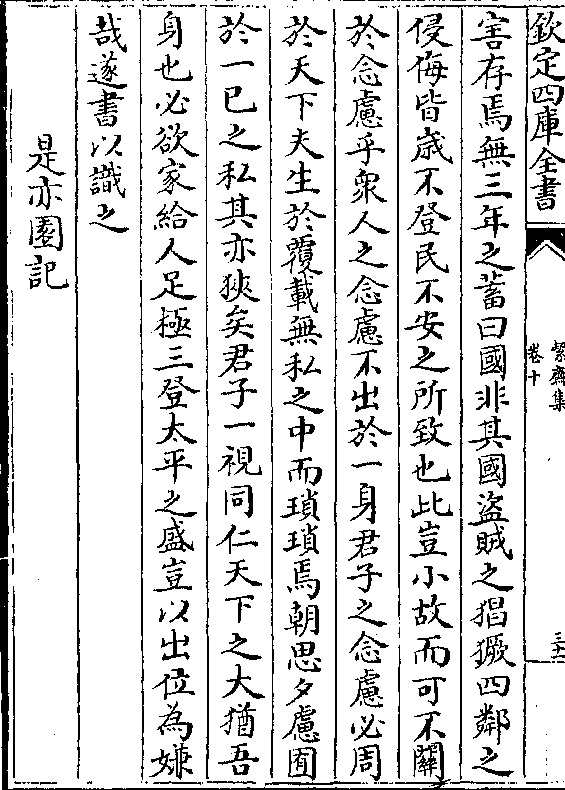 欽定四庫全書
絜齋集
卷十
三十一
害存焉無三年之蓄曰國非其國盜賊之猖獗四鄰之
侵侮皆歲不登民不安之所致也此豈小故而可不關
於念慮乎衆人之念慮不出於一身君子之念慮必周
於天下夫生於覆載無私之中而瑣瑣焉朝思夕慮囿
於一已之私其亦狹矣君子一視同仁天下之大猶吾
身也必欲家給人足極三登太平之盛豈以出位為嫌
哉遂書以識之
是亦園記